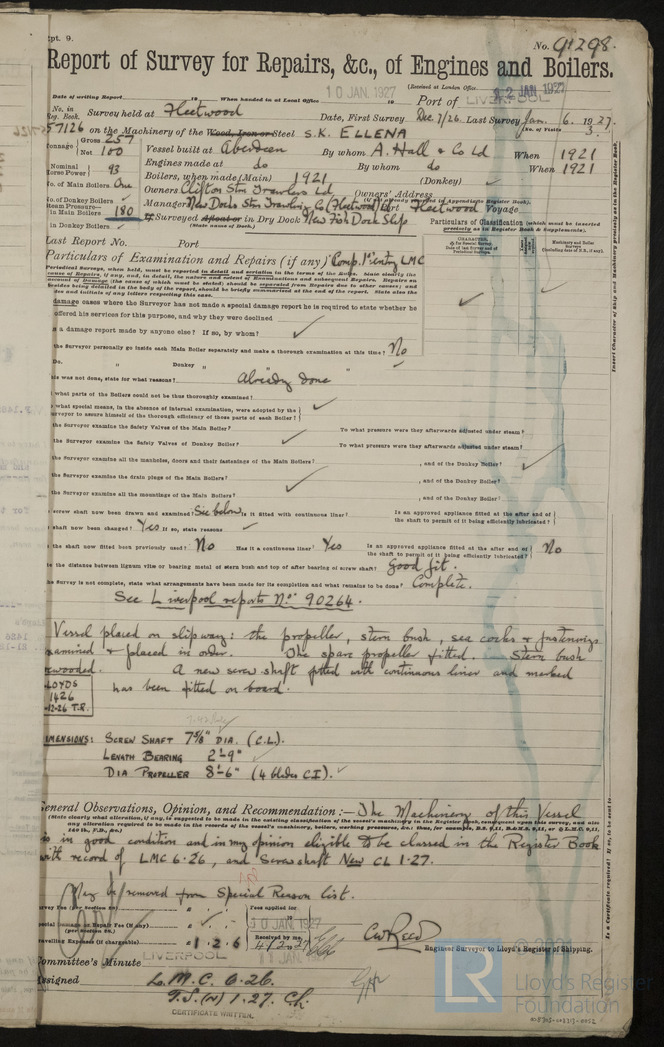 Rpt. 9.
No. 91298.
Report of Survey for Repairs, &c., of Engines and Boilers.
(Received at London Office 12 JAN. 1927
Date of writing Report 19 When handed in at Local Office 10 JAN. 1927 19 Port of LIVERPOOL
No. in Reg. Book. Survey held at Fleetwood Date, First Survey Dec. 7/26. Last Survey Jan. 6. 1927.
(No. of Visits 3.
57126 on the Machinery of the Wood, Iron or Steel S.K. ELLENA
Tonnage Gross 257 Net 100
Vessel built at Aberdeen By whom A. Hall & Co Ld When 1921
Engines made at do By whom do When 1921
Nominal Horse Power 93
Boilers, when made (Main) 1921 (Donkey)
No. of Main Boilers One
Owners Clifton Stm Trawlers Ld Owners' Address
No. of Donkey Boilers
Managers New Docks Stm Trawling Co (Fleetwood) Ld Port Fleetwood Voyage
Steam Pressure in Main Boilers 180
If Surveyed Afloat or in Dry Dock New Fish Dock Slip
(State name of Dock.)
in Donkey Boilers
Particulars of Classification (which must be inserted precisely as in Register Book & Supplements).
Last Report No. Port
Particulars of Examination and Repairs (if any) Comp. 1st entry LMC
damage cases where the Surveyor has not made a special damage report he is required to state whether he
offered his services for this purpose, and why they were declined.
is a damage report made by anyone else? If so, by whom?
the Surveyor personally go inside each Main Boiler separately and make a thorough examination at this time? No
Do. " Donkey " " "
this was not done, state for what reasons? Already done
what parts of the Boilers could not be thus thoroughly examined?
what special means, in the absence of internal examination, were adopted by the
surveyor to assure himself of the thorough efficiency of those parts of each Boiler?
the Surveyor examine the Safety Valves of the Main Boiler? To what pressure were they afterwards adjusted under steam?
the Surveyor examine the Safety Valves of Donkey Boiler? To what pressure were they afterwards adjusted under steam?
the Surveyor examine all the manholes, doors and their fastenings of the Main Boilers? , and of the Donkey Boiler?
the Surveyor examine the drain plugs of the Main Boilers? , and of the Donkey Boiler?
the Surveyor examine all the mountings of the Main Boilers? , and of the Donkey Boiler?
screw shaft now been drawn and examined? See below. Is it fitted with continuous liner? Is an approved appliance fitted at the after end of the shaft to permit of it being efficiently lubricated?
shaft now been changed? Yes If so, state reasons
the shaft now fitted been previously used? No Has it a continuous liner? Yes Is an approved appliance fitted at the after end of the shaft to permit of it being efficiently lubricated? No
the distance between lignum vitæ or bearing metal of stern bush and top of after bearing of screw shaft? Good fit.
the Survey is not complete, state what arrangements have been made for its completion and what remains to be done? Complete.
See Liverpool reports No. 90264.
Vessel placed on slipway: the propeller, stern bush, sea cocks & fastenings
examined & placed in order. The spare propeller fitted. Stern bush
rewooded. A new screw shaft fitted with continuous liner and marked
LLOYDS
1426
-12-26 T.R.
has been fitted on board.
DIMENSIONS: SCREW SHAFT 7⅝" DIA. (C.L.).
LENGTH BEARING 2'-9"
DIA PROPELLER 8'-6" (4 blades C.I.).
General Observations, Opinion, and Recommendation:— The Machinery of this Vessel
is in good condition and in my opinion eligible to be classed in the Register Book
with record of LMC 6.26, and Screwshaft New CL 1.27.
May be removed from Special Reason list.
Survey Fee (per Section 29)
Special Damage or Repair Fee (if any)
(per Section 29.)
Travelling Expenses (if chargeable) 1 . 2 . 6
Fees applied for 10 JAN. 1927
Received by me,
CW Reed
Engineer Surveyor to Lloyd's Register of Shipping.
Committee's Minute LIVERPOOL 11 JAN. 1927
Assigned L.M.C. 6.26.
T.S.(N) 1.27. CL.
CERTIFICATE WRITTEN.
Insert Character of Ship and Machinery precisely as in the Register Book.
Is a Certificate required? If so, to be sent to
LR
© 2021
Lloyd's Register
Foundation